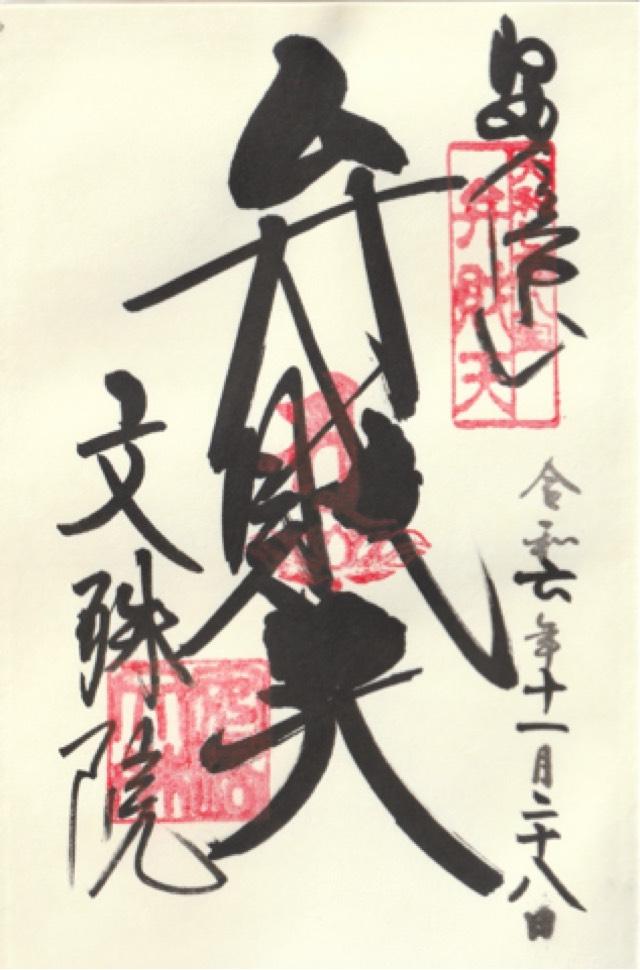 安倍山
弁財天
令和六年十一月二十八日
弁財天
文殊院